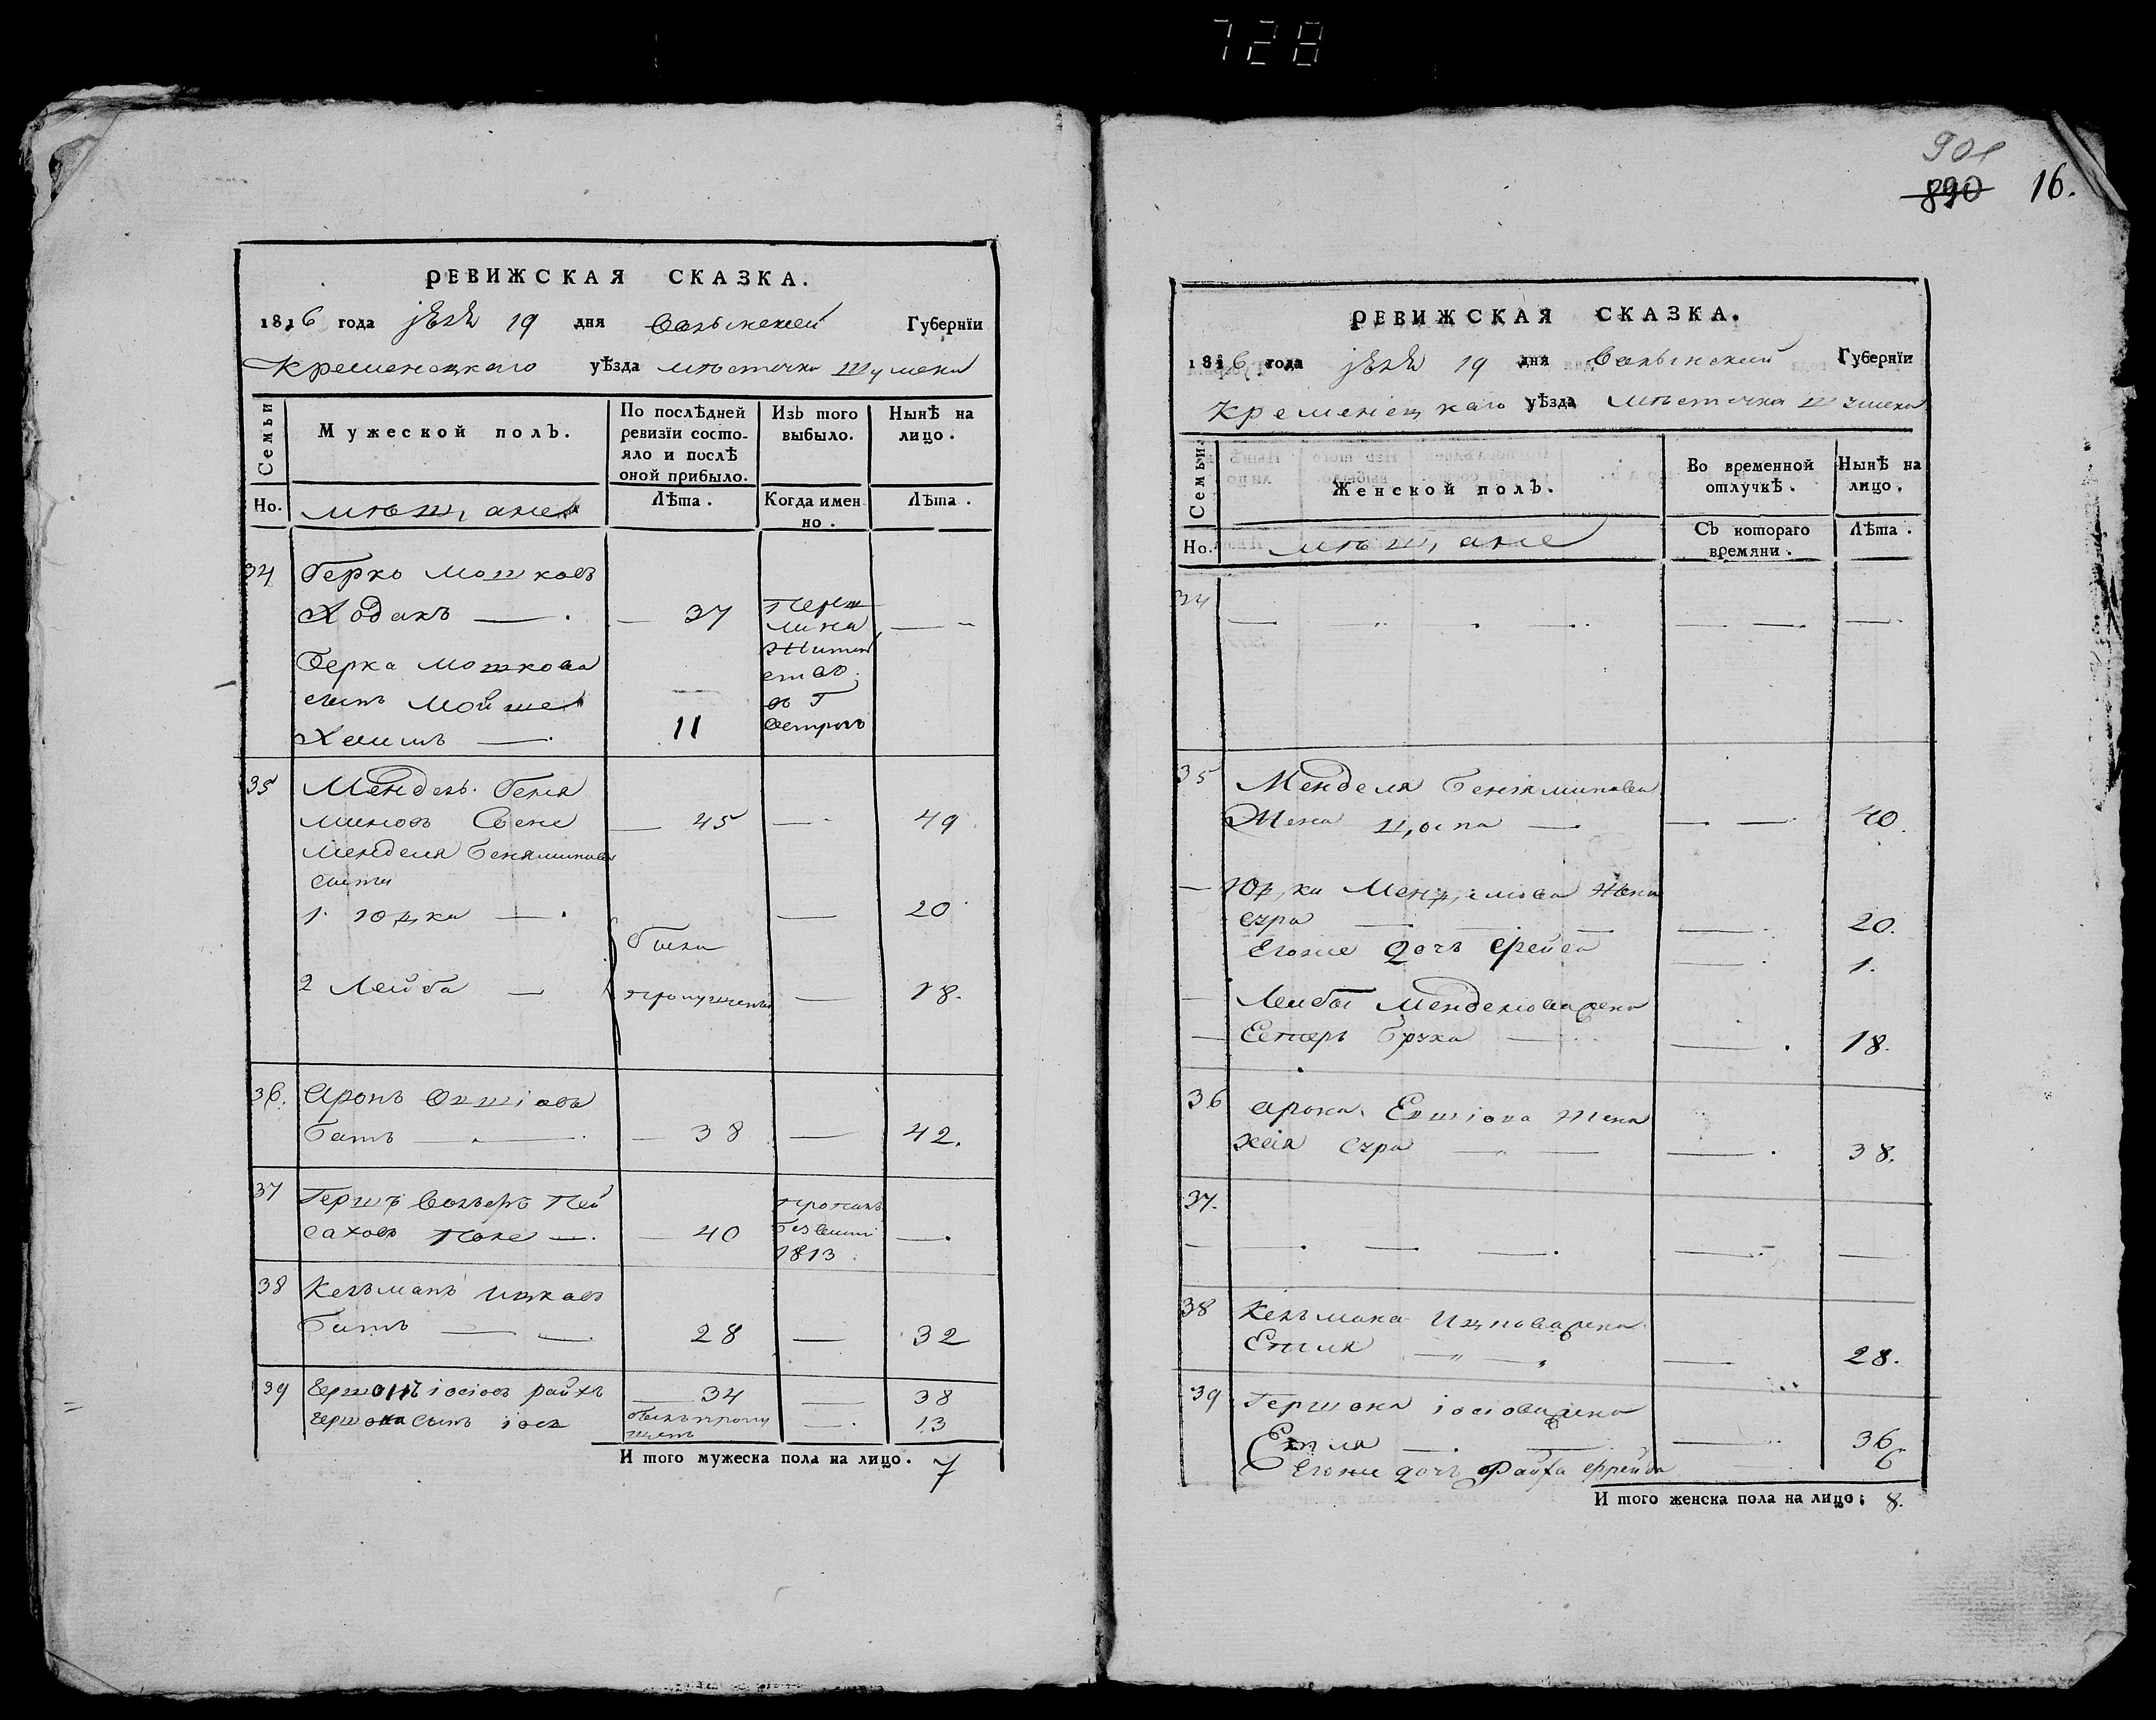 728
РЕВИЖСКАЯ СКАЗКА.
1816 года 19 дня Волынской Губернїи
Кременецкаго уѣзда мѣстечка Шумска
Семьи
Мужеской полъ.
По послѣдней ревизїи состо-
яло и послѣ
оной прибыло.
Изъ того
выбыло.
Нынѣ на
лицо.
Но.
мѣщане
Лѣта.
Когда имен
но.
Лѣта.
34 Берко Мошковъ
Ходакъ — 37
Берка Мошкова
сынъ Мойше
Хаимъ — 11
въ г
Острогъ
35 Мендель Беня
миновъ — 45 — 49
Менделя Беняминова
сыны
1. Юдка — 20
были
2 Лейба — пропущены — 18.
36. Аронъ
— 38 — 42.
37 Герш Вольфъ Пей
саховъ — 40 —
пропалъ
безвести
1813
38 Кельманъ Ицковъ
28 — 32
39 Гершонъ Іосіовъ райхъ — 34 — 38
Гершона сынъ Іось былъ пропу
щенъ — 13
И того мужеска пола на лицо. 7
901
890 16.
РЕВИЖСКАЯ СКАЗКА.
1816 года 19 дня Волынской Губернїи
Кременецкаго уѣзда мѣстечка Шумска
Семьи.
Женской полъ.
Во временной
отлучкѣ.
Нынѣ на
лицо.
Но.
мѣщане
Съ котораго
времяни.
Лѣта.
34 — — — —
35 Менделя Беняминова
Жена — — — 40.
— Юдки Менделова жена
Сура — — 20.
Егоже дочь Фрейда — 1.
— Лейбы Менделова жена
— Естеръ Бруха — — 18.
36 Арона жена
Хая Сура — — 38.
37.
— — — — — —
38 Кельмана Ицкова жена
Етля — — 28.
39 Гершона Іосіова жена
Етля — — 36
Егоже дочь Райха Фрейда 6
И того женска пола на лицо: 8.